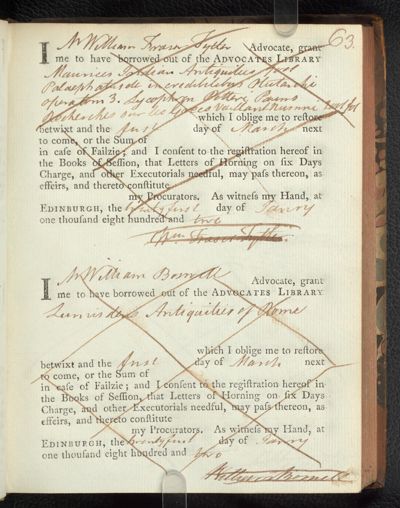 63.
I Mr William Fraser Tytler Advocate, grant
me to have borrowed out of the ADVOCATES LIBRARY
Maurices Indian Antiquities
Palaephatus de incredibilibus Plutarchi
operum 3. Lycophron Potteri Pauws
Recherches sur les Grecs Vaillant
which I oblige me to reſtore
betwixt and the first day of March next
to come, or the Sum of
in caſe of Failzie; and I conſent to the regiſtration hereof in
the Books of Seſſion, that Letters of Horning on ſix Days
Charge, and other Executorials needful, may paſs thereon, as
effeirs, and thereto conſtitute
my Procurators. As witneſs my Hand, at
EDINBURGH, the twenty first day of Janry
one thouſand eight hundred and two
Wm Fraser Tytler.
I Mr William Boswell Advocate, grant
me to have borrowed out of the ADVOCATES LIBRARY
Lumisden's Antiquities of Rome
which I oblige me to reſtore
betwixt and the first day of March next
to come, or the Sum of
in caſe of Failzie; and I conſent to the regiſtration hereof in
the Books of Seſſion, that Letters of Horning on ſix Days
Charge, and other Executorials needful, may paſs thereon, as
effeirs, and thereto conſtitute
my Procurators. As witneſs my Hand, at
EDINBURGH, the twenty first day of Janry
one thouſand eight hundred and two
William Boswell